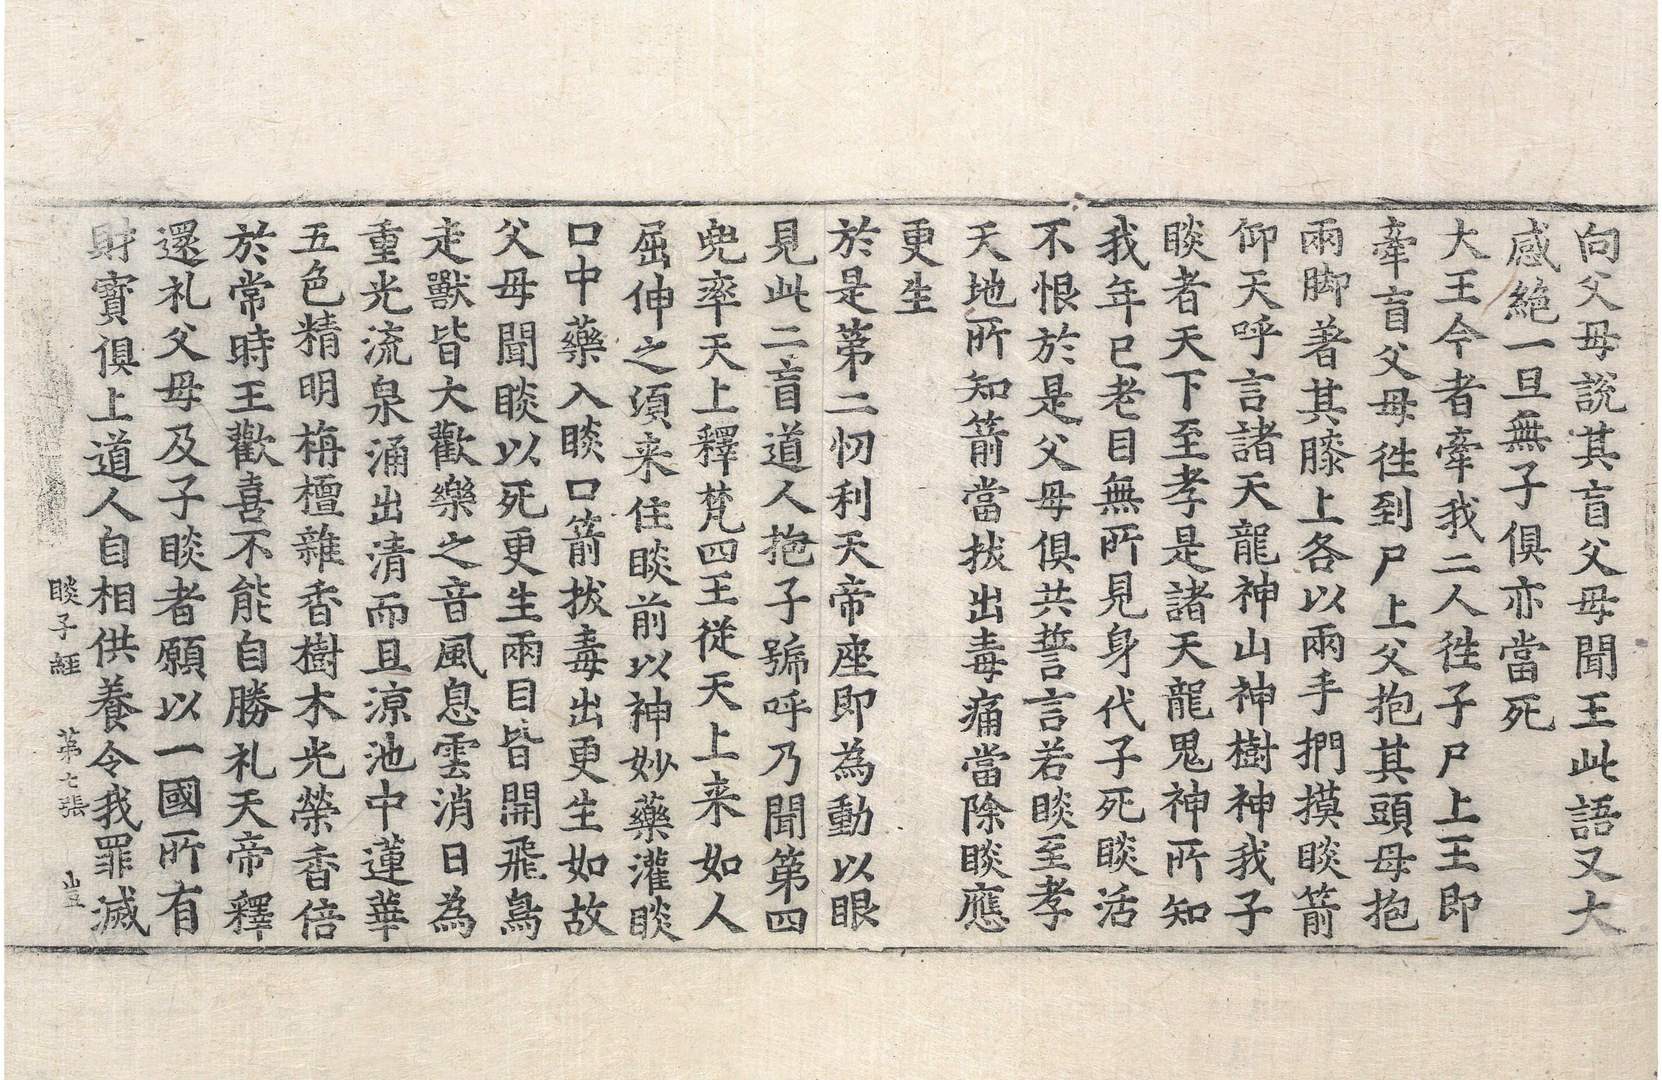 向父母說其盲父母聞王此語又大
感絕一旦無子俱亦當死
大王今者牽我二人往子尸上王即
牽盲父母徃到尸上父抱其頭母抱
兩脚著其膝上各以兩手捫摸睒箭
仰天呼言諸天龍神山神樹神我子
睒者天下至孝是諸天龍鬼神所知
我年已老目無所見身代子死睒活
不恨於是父母俱共誓言若睒至孝
天地所知箭當拔出毒痛當除睒應
更生
於是第二忉利天帝座即為動以眼
見此二盲道人抱子號呼乃聞第四
兜率天上釋梵四王從天上来如人
屈伸之須来住睒前以神妙藥灌睒
口中藥入睒口箭拔毒出更生如故
父母聞睒以死更生兩目皆開飛鳥
走獸皆大歡樂之音風息雲消日為
重光流泉涌出清而且涼池中蓮華
五色精明栴檀雜香樹木光榮香倍
於常時王歡喜不能自勝礼天帝釋
還礼父母及子睒者願以一國所有
財寶俱上道人自相供養令我罪滅
睒子經　第七張　豈